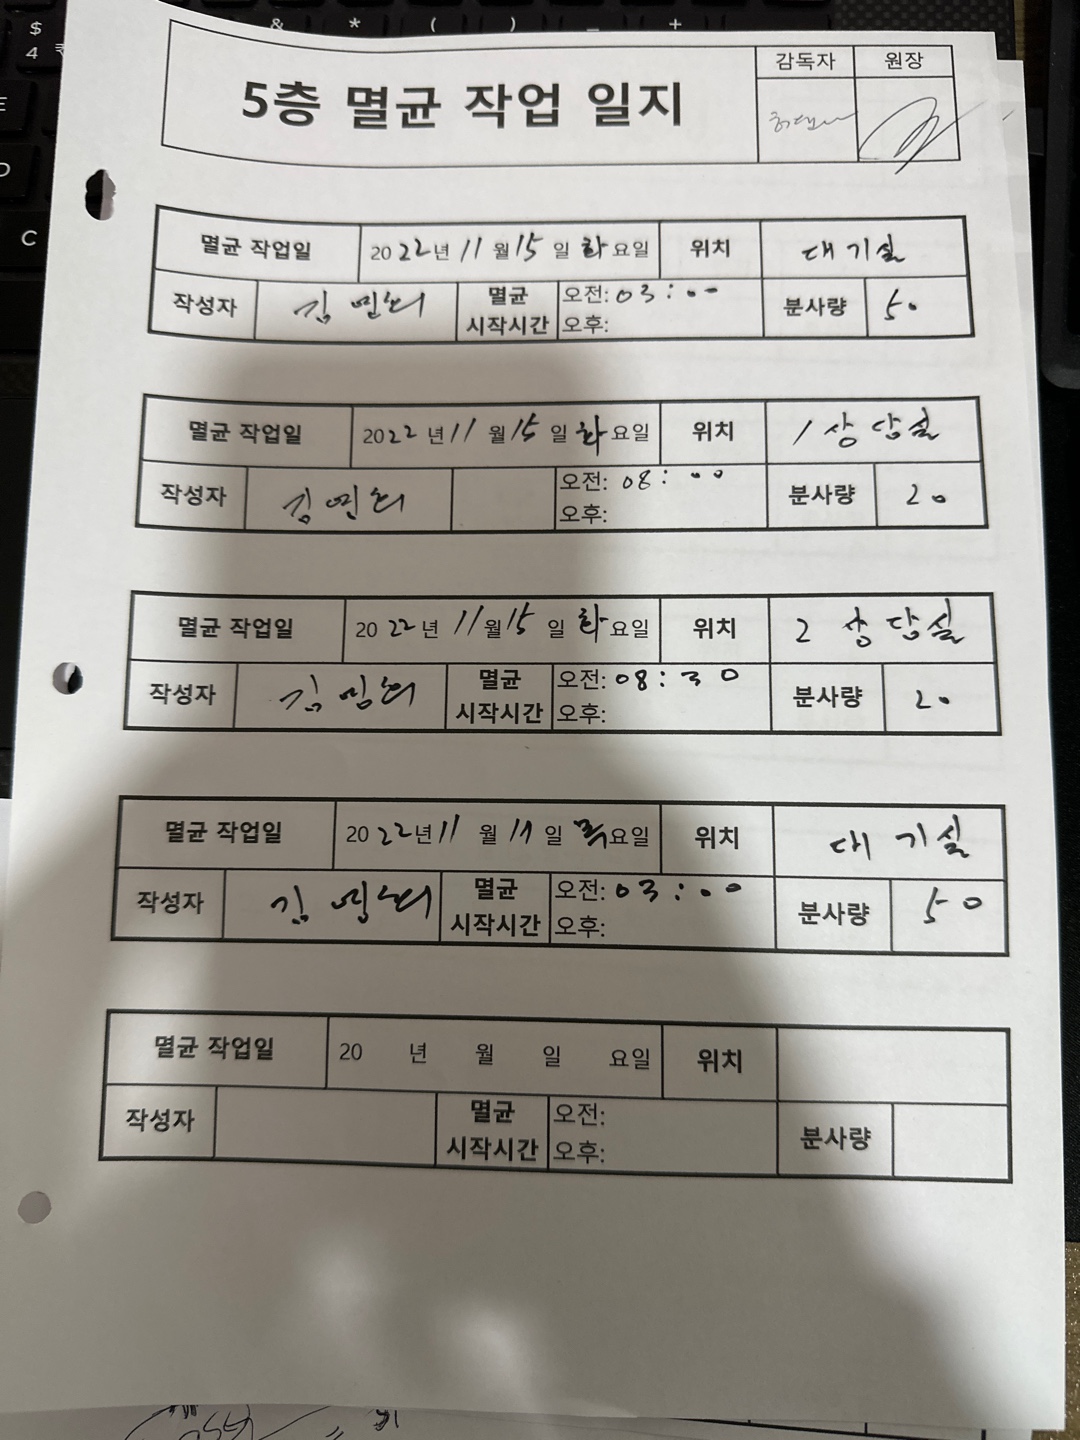 5층 멸균 작업 일지
감독자 원장
멸균 작업일 2022년 11월 15일 화요일 위치 대기실
작성자 김민희 멸균 시작시간 오전: 03:00 분사량 50
오후:
멸균 작업일 2022년 11월 15일 화요일 위치 1상담실
작성자 김민희 오전: 08:00 분사량 20
오후:
멸균 작업일 2022년 11월 15일 화요일 위치 2 상담실
작성자 김민희 멸균 시작시간 오전: 08:30 분사량 20
오후:
멸균 작업일 2022년 11월 일 목요일 위치 대기실
작성자 김민희 멸균 시작시간 오전: 03:00 분사량 50
오후:
멸균 작업일 20 년 월 일 요일 위치
작성자 멸균 시작시간 오전: 분사량
오후: